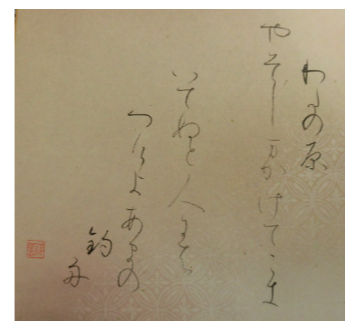 わたの原
やそしまかけてこき
いてぬと人には
つけよあまの
釣舟